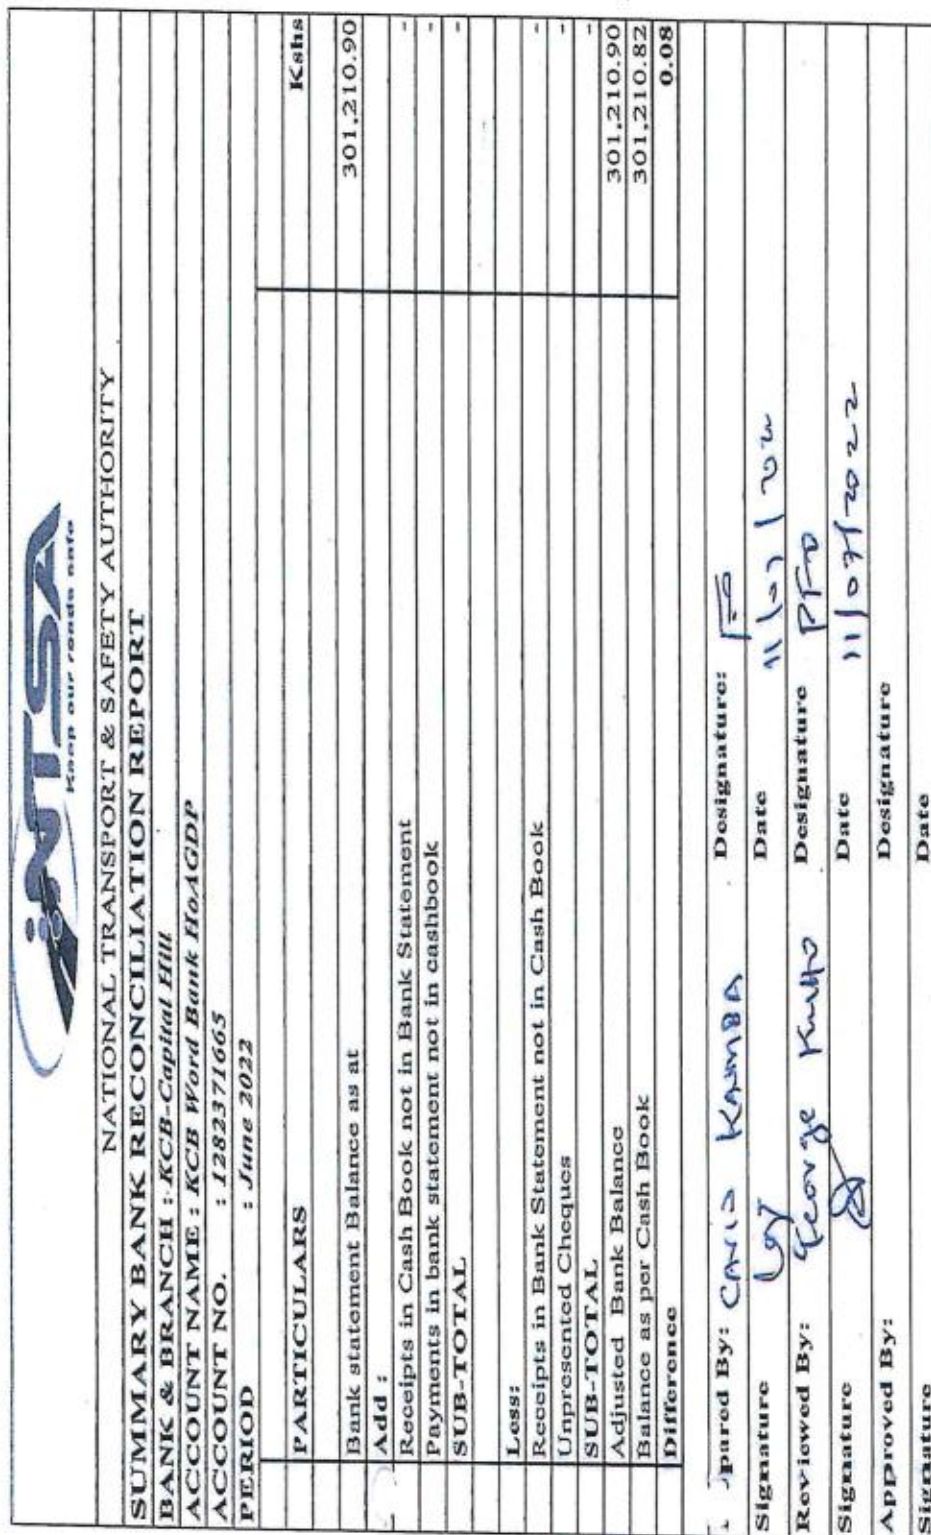 NTSA
Keep our roads safe
NATIONAL TRANSPORT & SAFETY AUTHORITY
SUMMARY BANK RECONCILIATION REPORT
BANK & BRANCH : KCB-Capital Hill
ACCOUNT NAME : KCB Word Bank HoAGDP
ACCOUNT NO. : 1282371665
PERIOD : June 2022
PARTICULARS Kshs
Bank statement Balance as at 301,210.90
Add :
Receipts in Cash Book not in Bank Statement -
Payments in bank statement not in cashbook -
SUB-TOTAL -
Less:
Receipts in Bank Statement not in Cash Book -
Unpresented Cheques -
SUB-TOTAL -
Adjusted Bank Balance 301,210.90
Balance as per Cash Book 301,210.82
Difference 0.08
pared By: KAMBA Designature: FO
Signature Date
Reviewed By: George Designature PFO
Signature Date 11/07/2022
Approved By: Designature
Signature Date